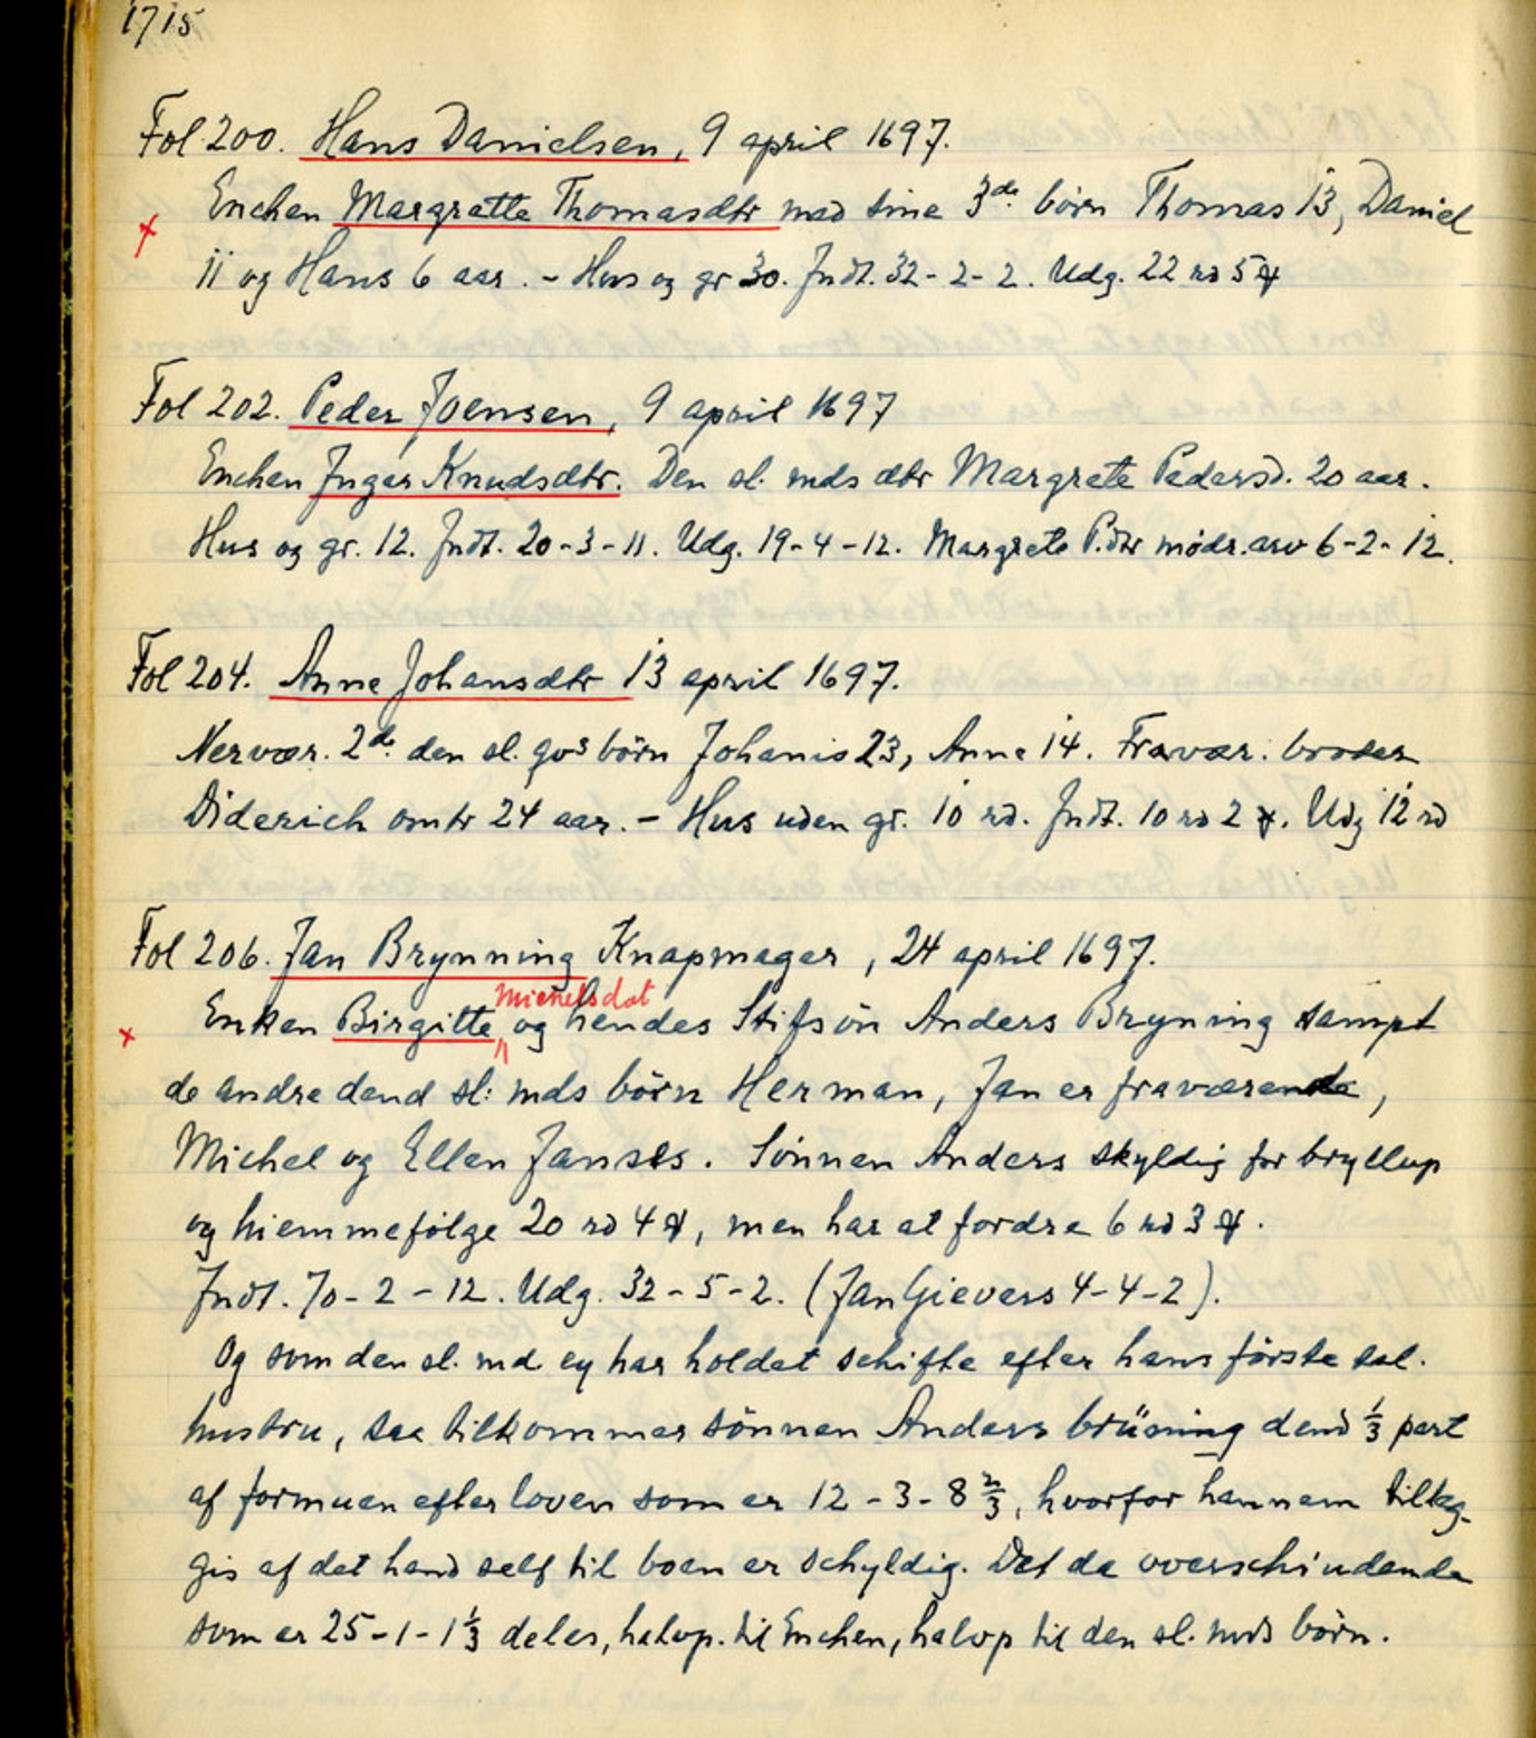 1715
Fol. 200. Hans Danielsen, 9 april 1697.
Enchen Margrette Thomasdtr med sine 3de børn Thomas 13, Daniel
11 og Hans 6 aar. - Hus og gr 30. Indt. 32-2-2. Udg. 22 rd 5 ℳ
Fol 202. Peder Joensen, 9 april 1697
Enchen Inger Knudsdtr. Den sl. mds dtr Margrete Pedersd. 20 aar.
Hus og gr. 12. Indt. 20-3-11. Udg. 19-4-12. Margrete P.dtr mødr. arv 6-2-12.
Fol 204. Anne Johansdtr 13 april 1697.
Nervær. 2de den sl. qvs børn Johanis 23, Anne 14. Fravær. broder
Diderich omtr 24 aar. - Hus uden gr. 10 rd. Indt. 10 rd 2 ℳ. Udg 12 rd
Fol 206. Jan Brynning Knapmager, 24 april 1697.
michelsdat
Enken Birgitte og hendes Stifsön Anders Bryning sampt
de andre dend sl: mds börn Herman, Jan er fraværende,
Michel og Ellen Janses. Sönnen Anders skyldig for bryllup
og hiemmefölge 20 rd 4 ℳ, men har at fordre 6 rd 3 ℳ.
Indt. 70-2-12. Udg. 32-5-2. (Jan Gievers 4-4-2).
Og som den sl. md ey har holdet schifte efter hans förste sal.
hustru, saa tilkommer sönnen Anders brüning dend 1/3 part
af formuen efter loven som er 12-3-8 2/3, hvorfor hannem tillæg-
gis af det hand self til boen er schyldig. Det da overschiudende
som er 25-1-1 1/3 deles, halvp. til Enchen, halvp til den sl. mds börn.